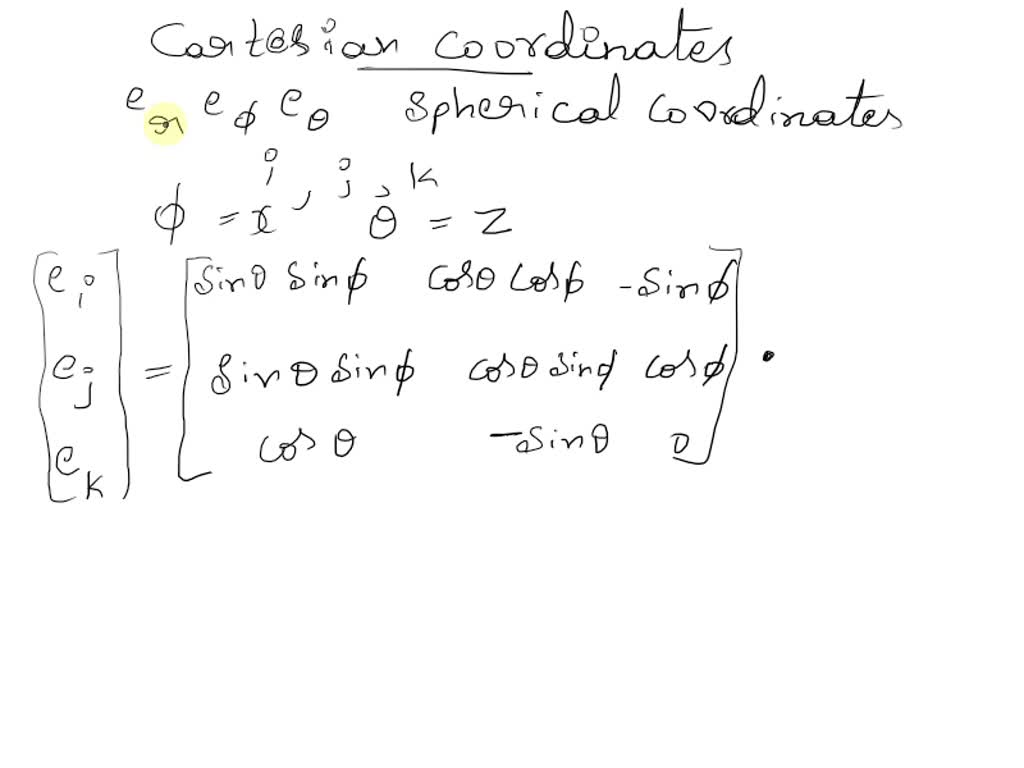 Cartesian coordinates
e_r e_ϕ e_θ spherical coordinates
i, j, k
ϕ = x θ = z
[e_i] = [sinθ sinϕ cosθ cosϕ -sinϕ] .
[e_j] [sinθ sinϕ cosθ sinϕ cosϕ]
[e_k] [cosθ -sinθ 0]